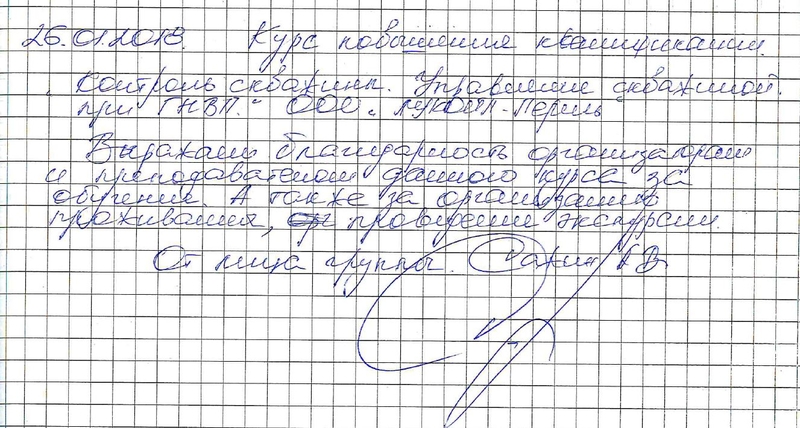 26.01.2018. Курс повышения квалификации.
"Контроль скважины. Управление скважиной.
при ГНВП." ООО "ЛУКОЙЛ-Пермь"
Выражаем благодарность организаторам
и преподавателям данного курса за
обучение. А также за организацию
проживания, проведение экскурсии.
От лица группы.